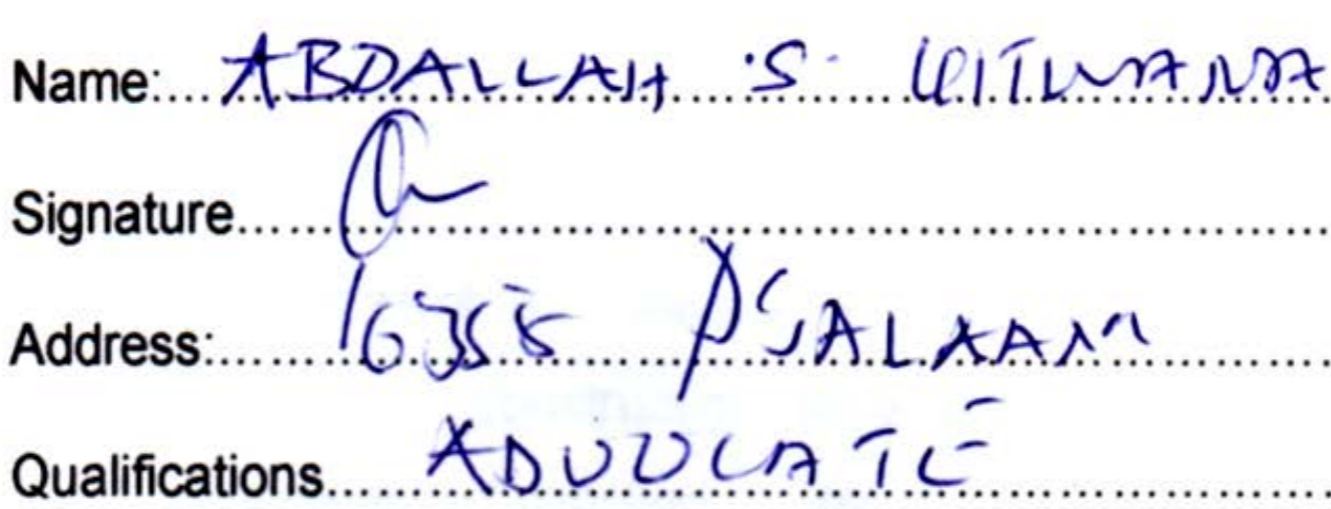 Name: ABDALLAH .S. KITWANA
Signature
Address: 16355 D'SALAAM
Qualifications ADVOCATE